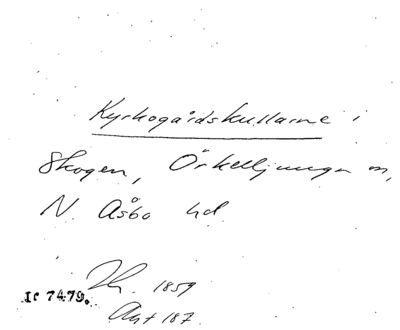 Kyrkogårdskullarne i
Skogen, Örkelljunga sn,
N. Åsbo hd.
1859
Ic 7479.
187